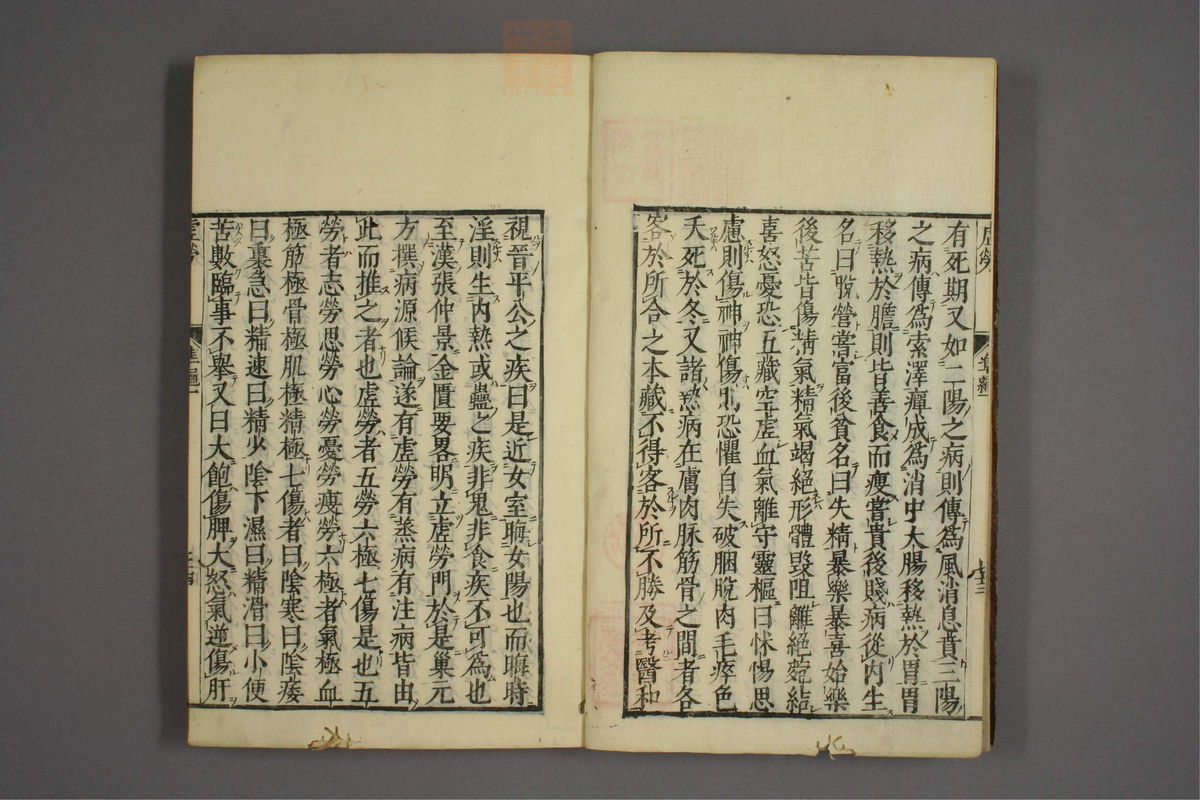 有死期又如二陽之病則傳爲風消息賁三陽
之病傳爲索澤癉成爲消中大腸移熱於胃胃
移熱於膽則皆善食而瘦嘗貴後賤病從内生
名曰脫營嘗富後貧名曰失精暴樂暴喜始樂
後苦皆傷精氣精氣竭絕形體毀阻離絕菀結
喜怒憂恐五藏空虛血氣離守靈樞曰怵惕思
慮則傷神神傷則恐懼自失破䐃脫肉毛瘁色
夭死於冬又諸熱病在膚肉脉筋骨之間者各
客於所合之本藏不得客於所不勝及考醫和
視晉平公之疾曰是近女室晦女陽也而晦時
淫則生内熱或蠱之疾非鬼非食疾不可爲也
至漢張仲景金匱要畧明立虛勞門於是巢元
方撰病源候論遂有虛勞有蒸病有注病皆由
此而推之者也虛勞者五勞六極七傷是也五
勞者志勞思勞心勞憂勞瘦勞六極者氣極血
極筋極骨極肌極精極七傷者曰陰寒曰陰痿
曰裏急曰精速曰精少陰下濕曰精滑曰小便
苦數臨事不舉又曰大飽傷脾大怒氣逆傷肝
虛勞